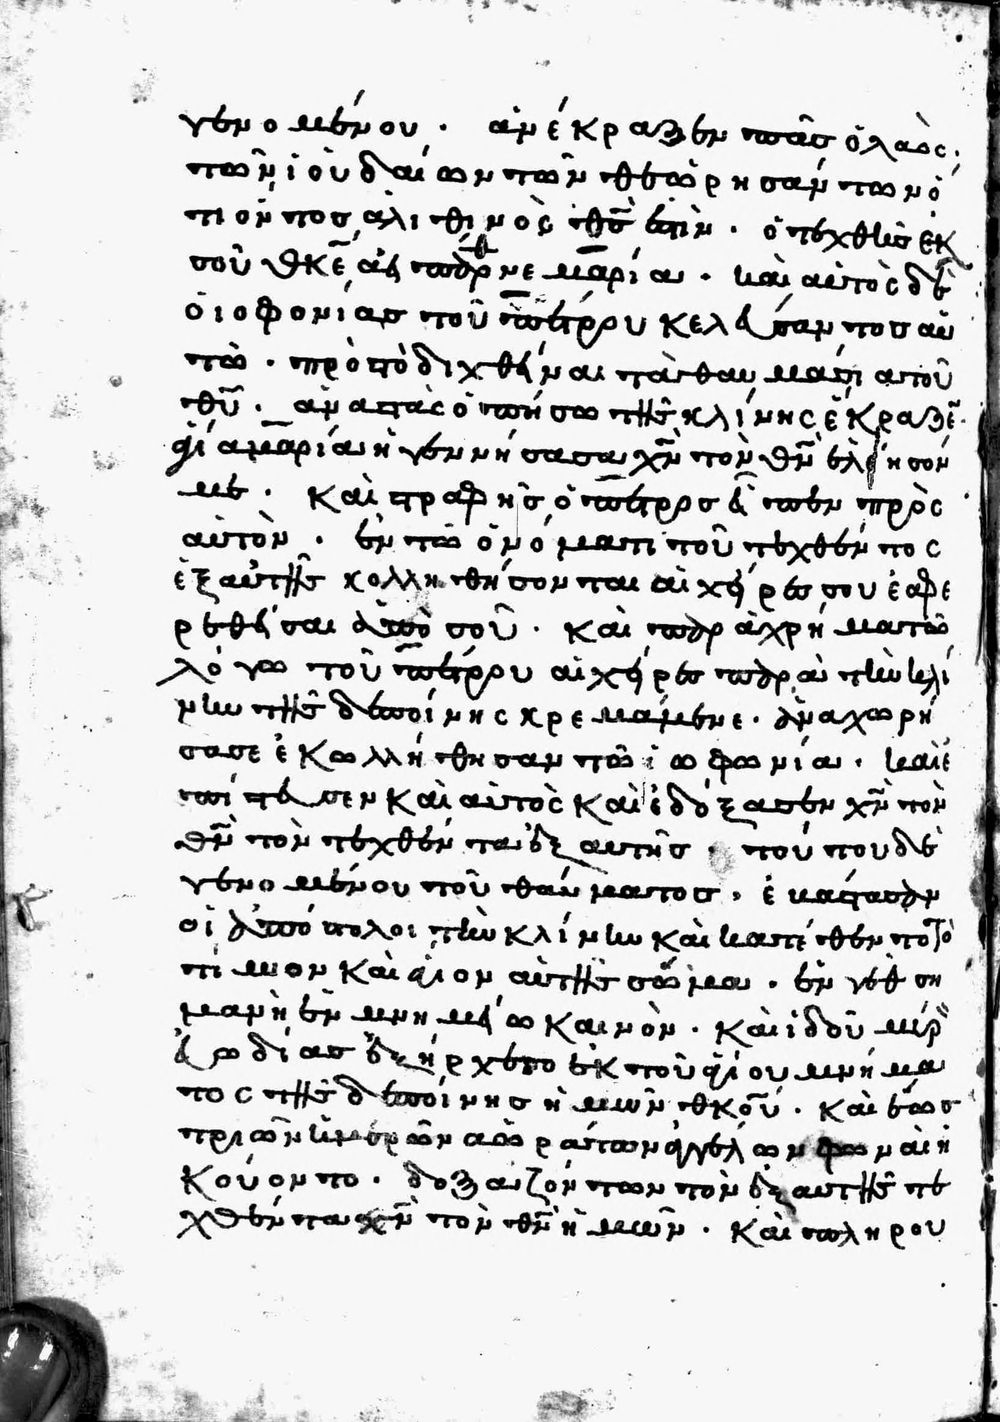 γενομένου · ἀνέκραξεν πᾶσ ὁ λαὸς
τῶν ἰουδαίων τῶν θεωρησάντων ὁ
τι ὄντοσ ἀλιθινὸς θσ ἐστὶν · ὁ τεχθεὶσ ἐκ
σοῦ θκε ἀειπάρθενε μαρία · καὶ αὐτὸς δὲ
ὁ ἰοφονίασ τοῦ πέτρου κελεύσαντοσ αὐ
τῶ · πρὸ τὸ διχθείναι τὰ θαυμάσια τοῦ
θυ · ἀναστὰς ὀπήσω τῆς κλίνης ἔκραξε
ἁγία μαρία ἡ γεννήσασα χν τὸν θν ἐλέησόν
με · καὶ στραφὴς ὁ πέτροσ εἶπεν πρὸς
αὐτὸν · ἐν τῶ ὀνόματι τοῦ τεχθέντος
ἐξ αὐτῆς κολληθήσονται αἱ χεῖρες σου ἑ αφε
ρεθεῖσαι ἀπὸ σοῦ · καὶ παραχρῆμα τῶ
λόγω τοῦ πέτρου αἱ χεῖρες παρὰ τὴν κλί
νην τῆς δεσποίνης κρεμάμενε · ἀναχωρή
σασε ἐκωλλήθησαν τῶ ἰωφωνία · καὶ ἐ
πίστευσεν καὶ αὐτὸς καὶ ἐδόξασεν χν τὸν
θν τὸν τεχθέντα ἐξ αυτῆσ · τούτου δὲ
γενομένου τοῦ θαύματοσ · ἐκάστασαν
οἱ ἀπόστολοι τὴν κλίνην καὶ κατέθεντο τὸ
τίμιον καὶ ἅγιον αὐτῆς σῶμα · ἐν γεθση
μανὴ ἐν μνημείω καινὸν · καὶ ἰδοῦ μύρου
εὐωδίασ ἐξήρχετο ἐκ τοῦ ἁγίου μνήμα
τος τῆς δεσποίνησ ἡμῶν θκου · καὶ ἕωσ
τριῶν ἡμερῶν ἀωράτων ἀγγέλων φωναὶ ἠ
κούοντο · δοξαζόντων τὸν ἐξ αυτῆς τε
χθέντα χν τὸν θν ἡμῶν · καὶ πληρου